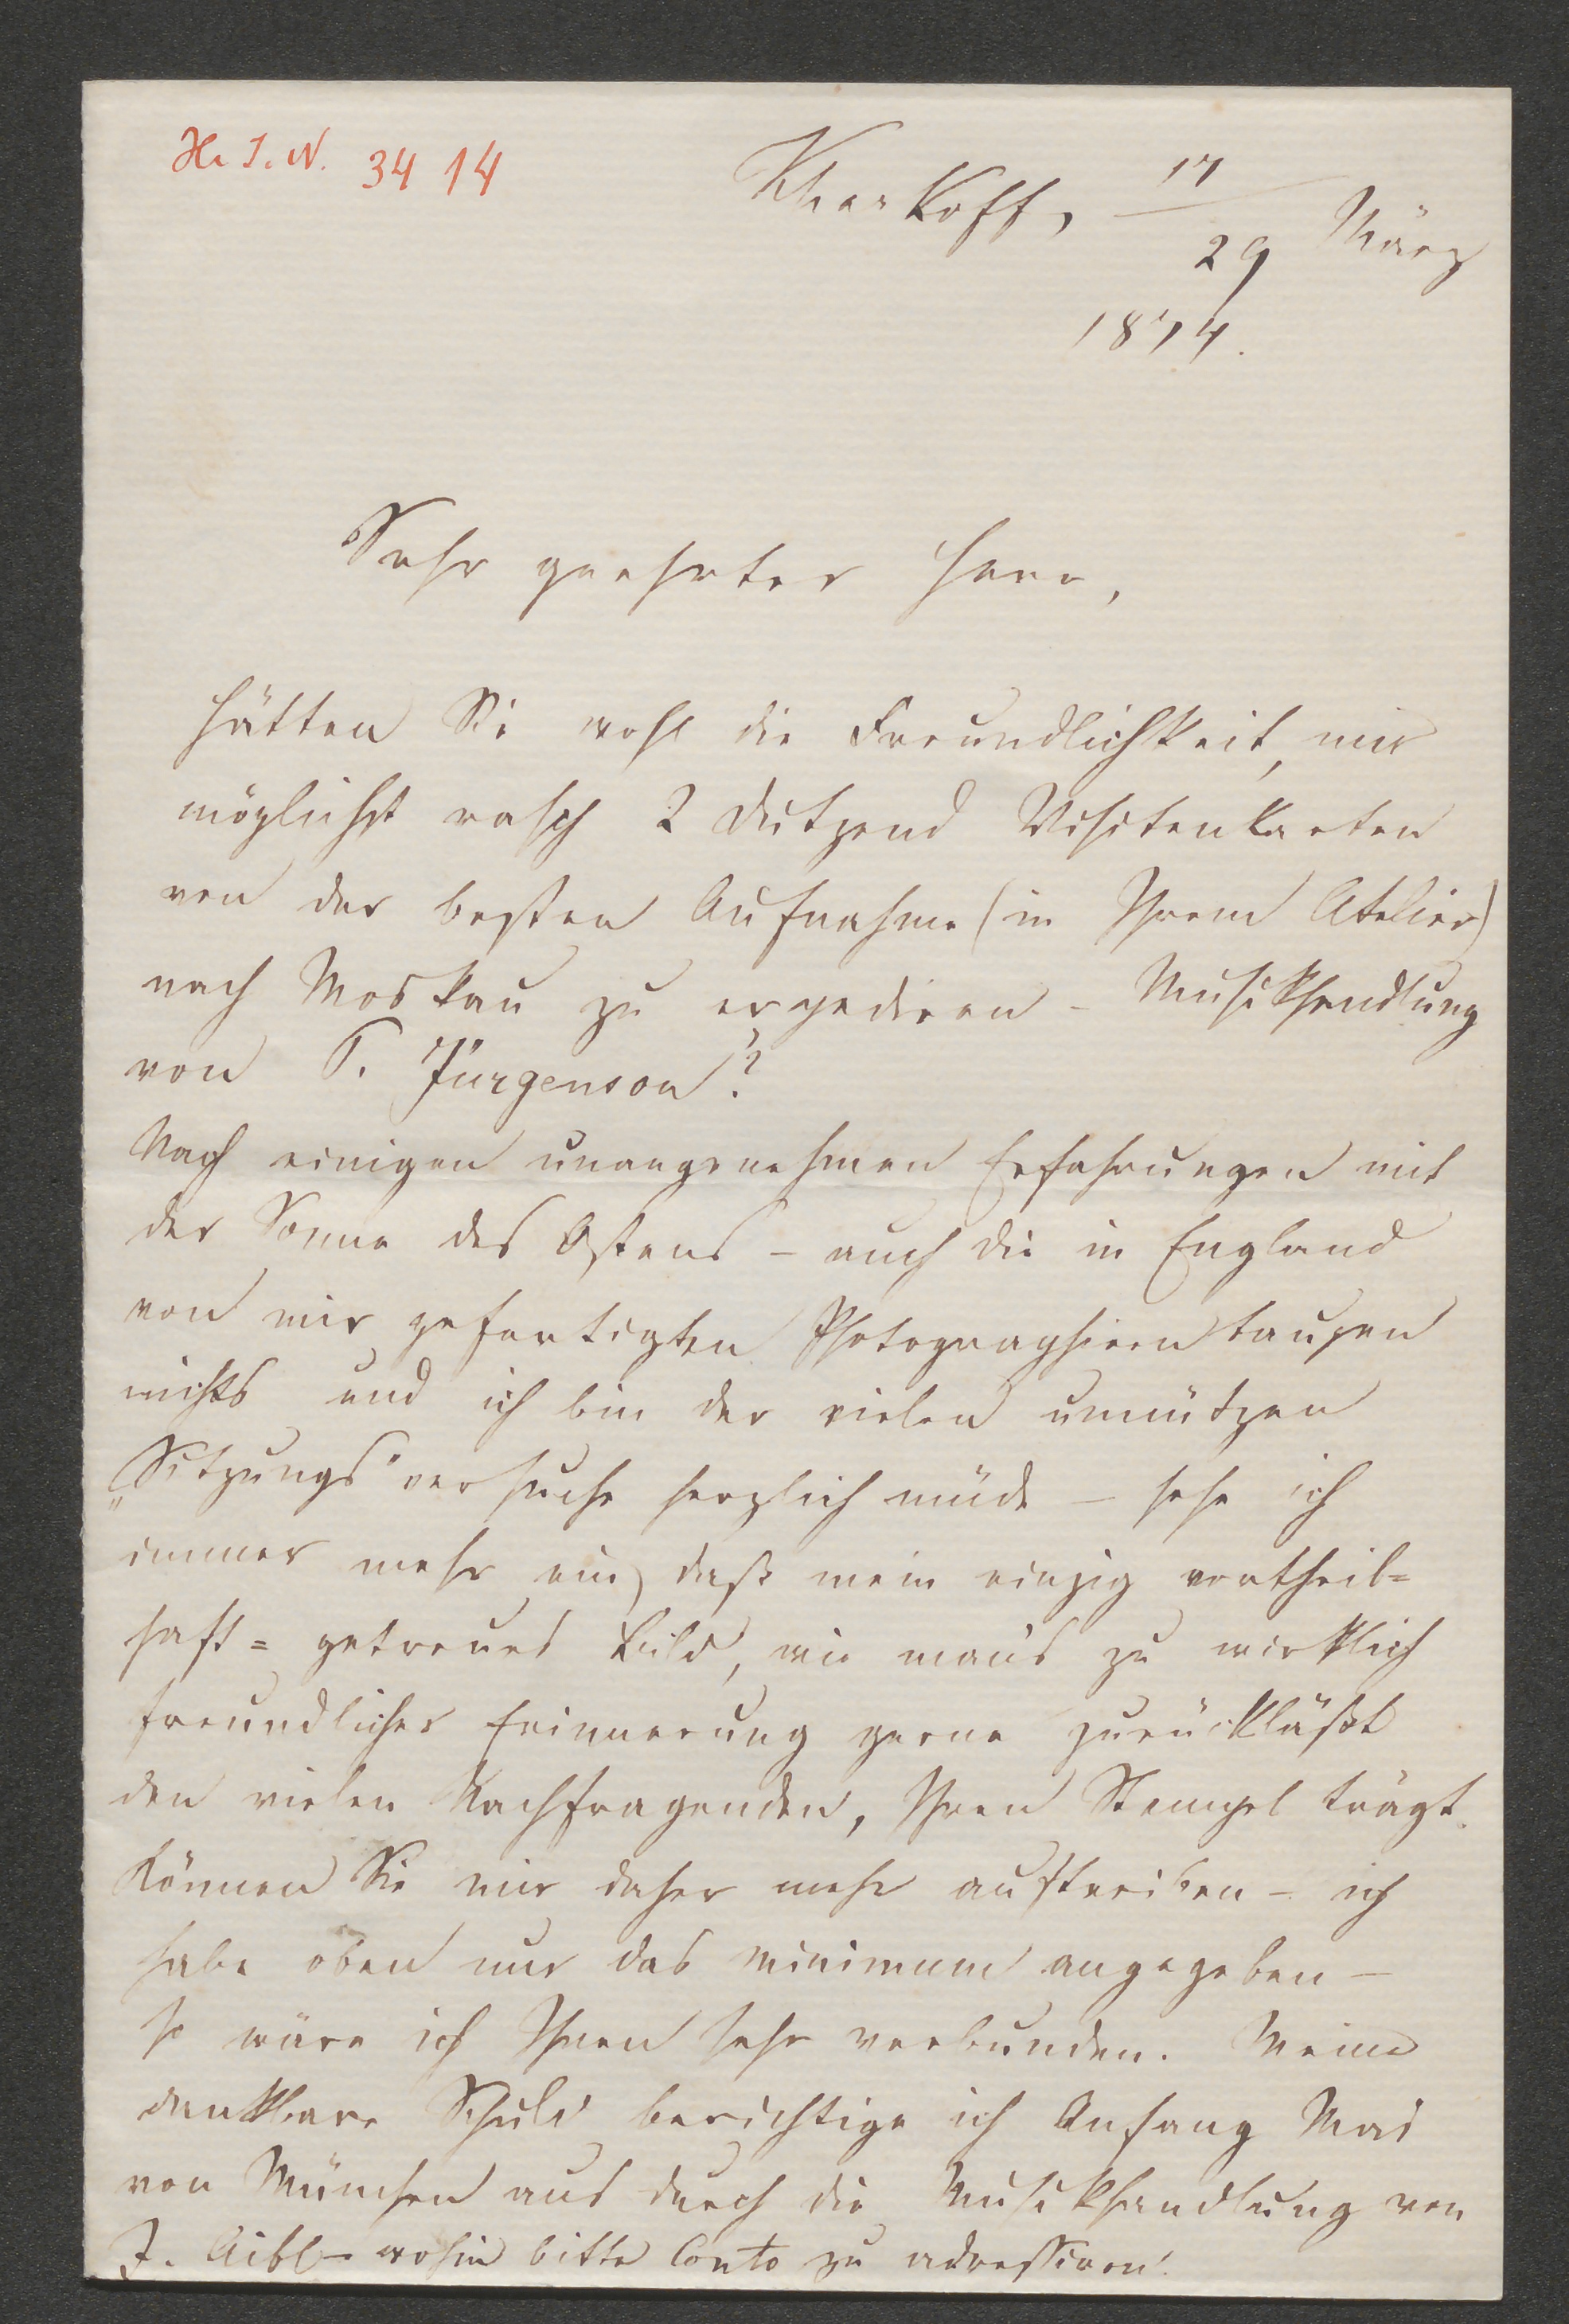 H. I. N. 34 14
Kharkoff, 17
29 März
1874.
Sehr geehrter Herr,
hätten Sie wohl die Freundlichkeit, mir
möglichst rasch 2 Dutzend Visitenkarten
von der besten Aufnahme (in Ihrem Atelier)
nach Moskau zu expediren – Musikhandlung
von P. Jürgenson?
Nach einigen unangenehmen Erfahrungen mit
der Sonne des Ostens – auch die in England
von mir gefertigten Photographieen taugen
nichts und ich bin der vielen unnützen
„Sitzungs"versuche herzlich müde – sehe ich
immer mehr ein, daß mein einzig vortheil=
haft=getreues Bild, wie man's zu wirklich
freundlicher Erinnerung gerne zurückläßt
den vielen Nachfragenden, Ihren Stempel trägt.
Können Sie mir daher mehr auftreiben – ich
habe oben nur das minimum angegeben –
so wäre ich Ihnen sehr verbunden. Meine
dankbare Schuld berichtige ich Anfang Mai
von München aus durch die Musikhandlung von
J. Aibl – wohin bitte Conto zu adressiren!